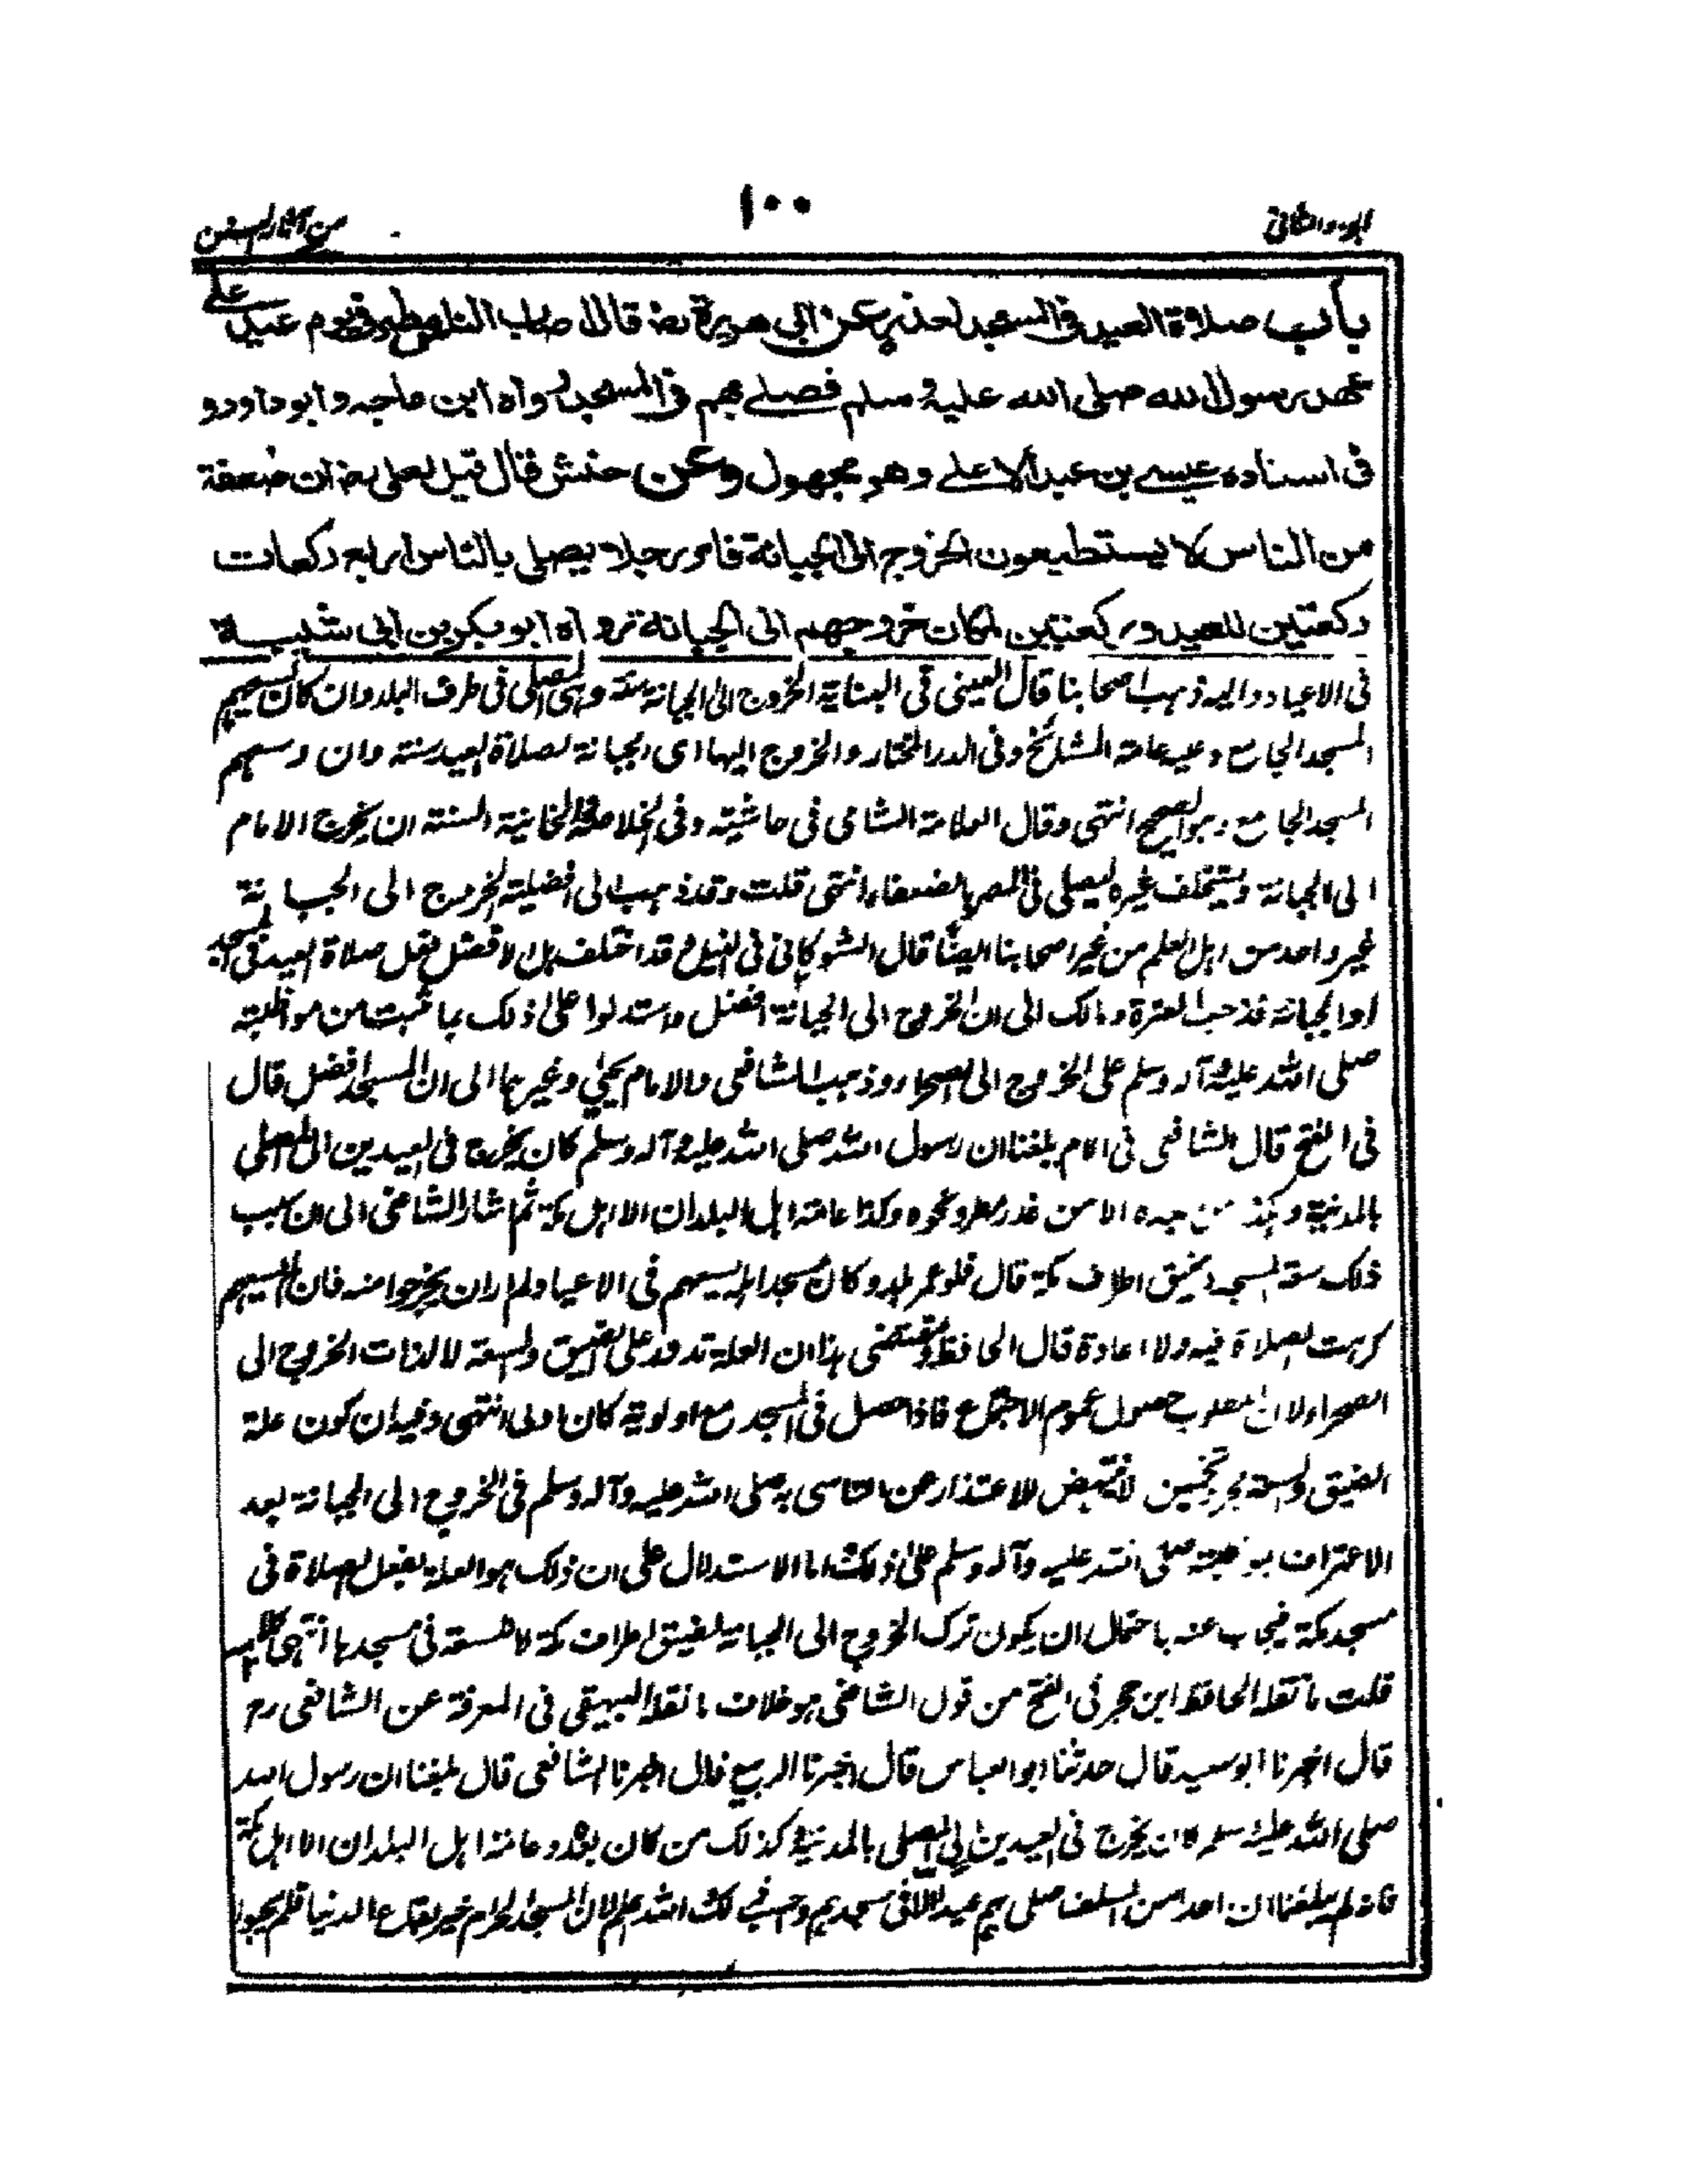 الجزء الثانى
١٠٠
من آثار السنن
باب صلاة العيد فى المسجد لعذر عن ابى هريرة رض قال اصاب الناس مطر فى يوم عيد على
عهد رسول الله صلى الله عليه وسلم فصلے بهم فى المسجد رواه ابن ماجه وابو داود و
فى اسناده عيسے بن عبد الاعلے وهو مجهول وعن حنش قال قيل لعلى رض ان ضعفة
من الناس لا يستطيعون الخروج الى الجبانة فامر رجلا يصلى بالناس اربع ركعات
ركعتين للعيد وركعتين لمكان خروجهم الى الجبانة رواه ابو بكر بن ابى شيبة
فى الاعياد واليه ذهب اصحابنا قال العينى فى البناية الخروج الى الجبانة سنة وهى المصلى فى طرف البلد وان كان يسعهم
المسجد الجامع وعليه عامة المشائخ وفى الدر المختار والخروج اليها اى الجبانة لصلاة العيد سنة وان وسعهم
المسجد الجامع وهو الصحيح انتهى وقال العلامة الشامى فى حاشيته وفى الخلاصة والخانية السنة ان يخرج الامام
الى الجبانة ويستخلف غيره ليصلى فى المصر بالضعفاء انتهى قلت وقد ذهب الى افضلية الخروج الى الجبانة
غير واحد من اهل العلم من غير اصحابنا ايضًا قال الشوكانى فى النيل وقد اختلف هل الافضل فعل صلاة العيد فى المسجد
او الجبانة فذهب العترة ومالك الى ان الخروج الى الجبانة افضل واستدلوا على ذلك بما ثبت من مواظبته
صلى الله عليه وآله وسلم على الخروج الى الصحراء وذهب الشافعى والامام يحيٰى وغيرهما الى ان المسجد افضل قال
فى الفتح قال الشافعى فى الام بلغنا ان رسول الله صلى الله عليه وآله وسلم كان يخرج فى العيدين الى المصلى
بالمدينة وهكذا من بعده الا من عذر مطر ونحوه وكذا عامة اهل البلدان الا اهل مكة ثم اشار الشافعى الى ان سبب
ذلك سعة المسجد وضيق اطراف مكة قال فلو عمر بلد وكان مسجد اهله يسعهم فى الاعياد لم ار ان يخرجوا منه فان لم يسعهم
كرهت الصلاة فيه ولا اعادة قال الحافظ ومقتضى هذا ان العلة تدور على الضيق والسعة لا لذات الخروج الى
الصحراء ولان المطلوب حصول عموم الاجتماع فاذا حصل فى المسجد مع اولوية كان اولى انتهى وفيه ان كون علة
الضيق والسعة مجرد تخمين لا ينتهض للاعتذار عن التاسى به صلى الله عليه وآله وسلم فى الخروج الى الجبانة بعد
الاعتراف بمواظبته صلى الله عليه وآله وسلم علىٰ ذلك واما الاستدلال على ان ذلك هو العلة بفعل الصلاة فى
مسجد مكة فيجاب عنه باحتمال ان يكون ترك الخروج الى الجبانة لضيق اطراف مكة لا للسعة فى مسجدها انتهى كلامه
قلت ما نقله الحافظ ابن حجر فى الفتح من قول الشافعى هو خلاف ما نقله البيهقى فى المعرفة عن الشافعى رح
قال اخبرنا ابو سعيد قال حدثنا ابو العباس قال اخبرنا الربيع قال اخبرنا الشافعى قال بلغنا ان رسول الله
صلى الله عليه وسلم كان يخرج فى العيدين الى المصلى بالمدينة وكذلك من كان بعده وعامة اهل البلدان الا اهل مكة
فانه لم يبلغنا ان احدا من السلف صلى بهم عيدا الا فى مسجدهم واحسب ذلك والله اعلم لان المسجد الحرام خير بقاع الدنيا فلم يحبوا